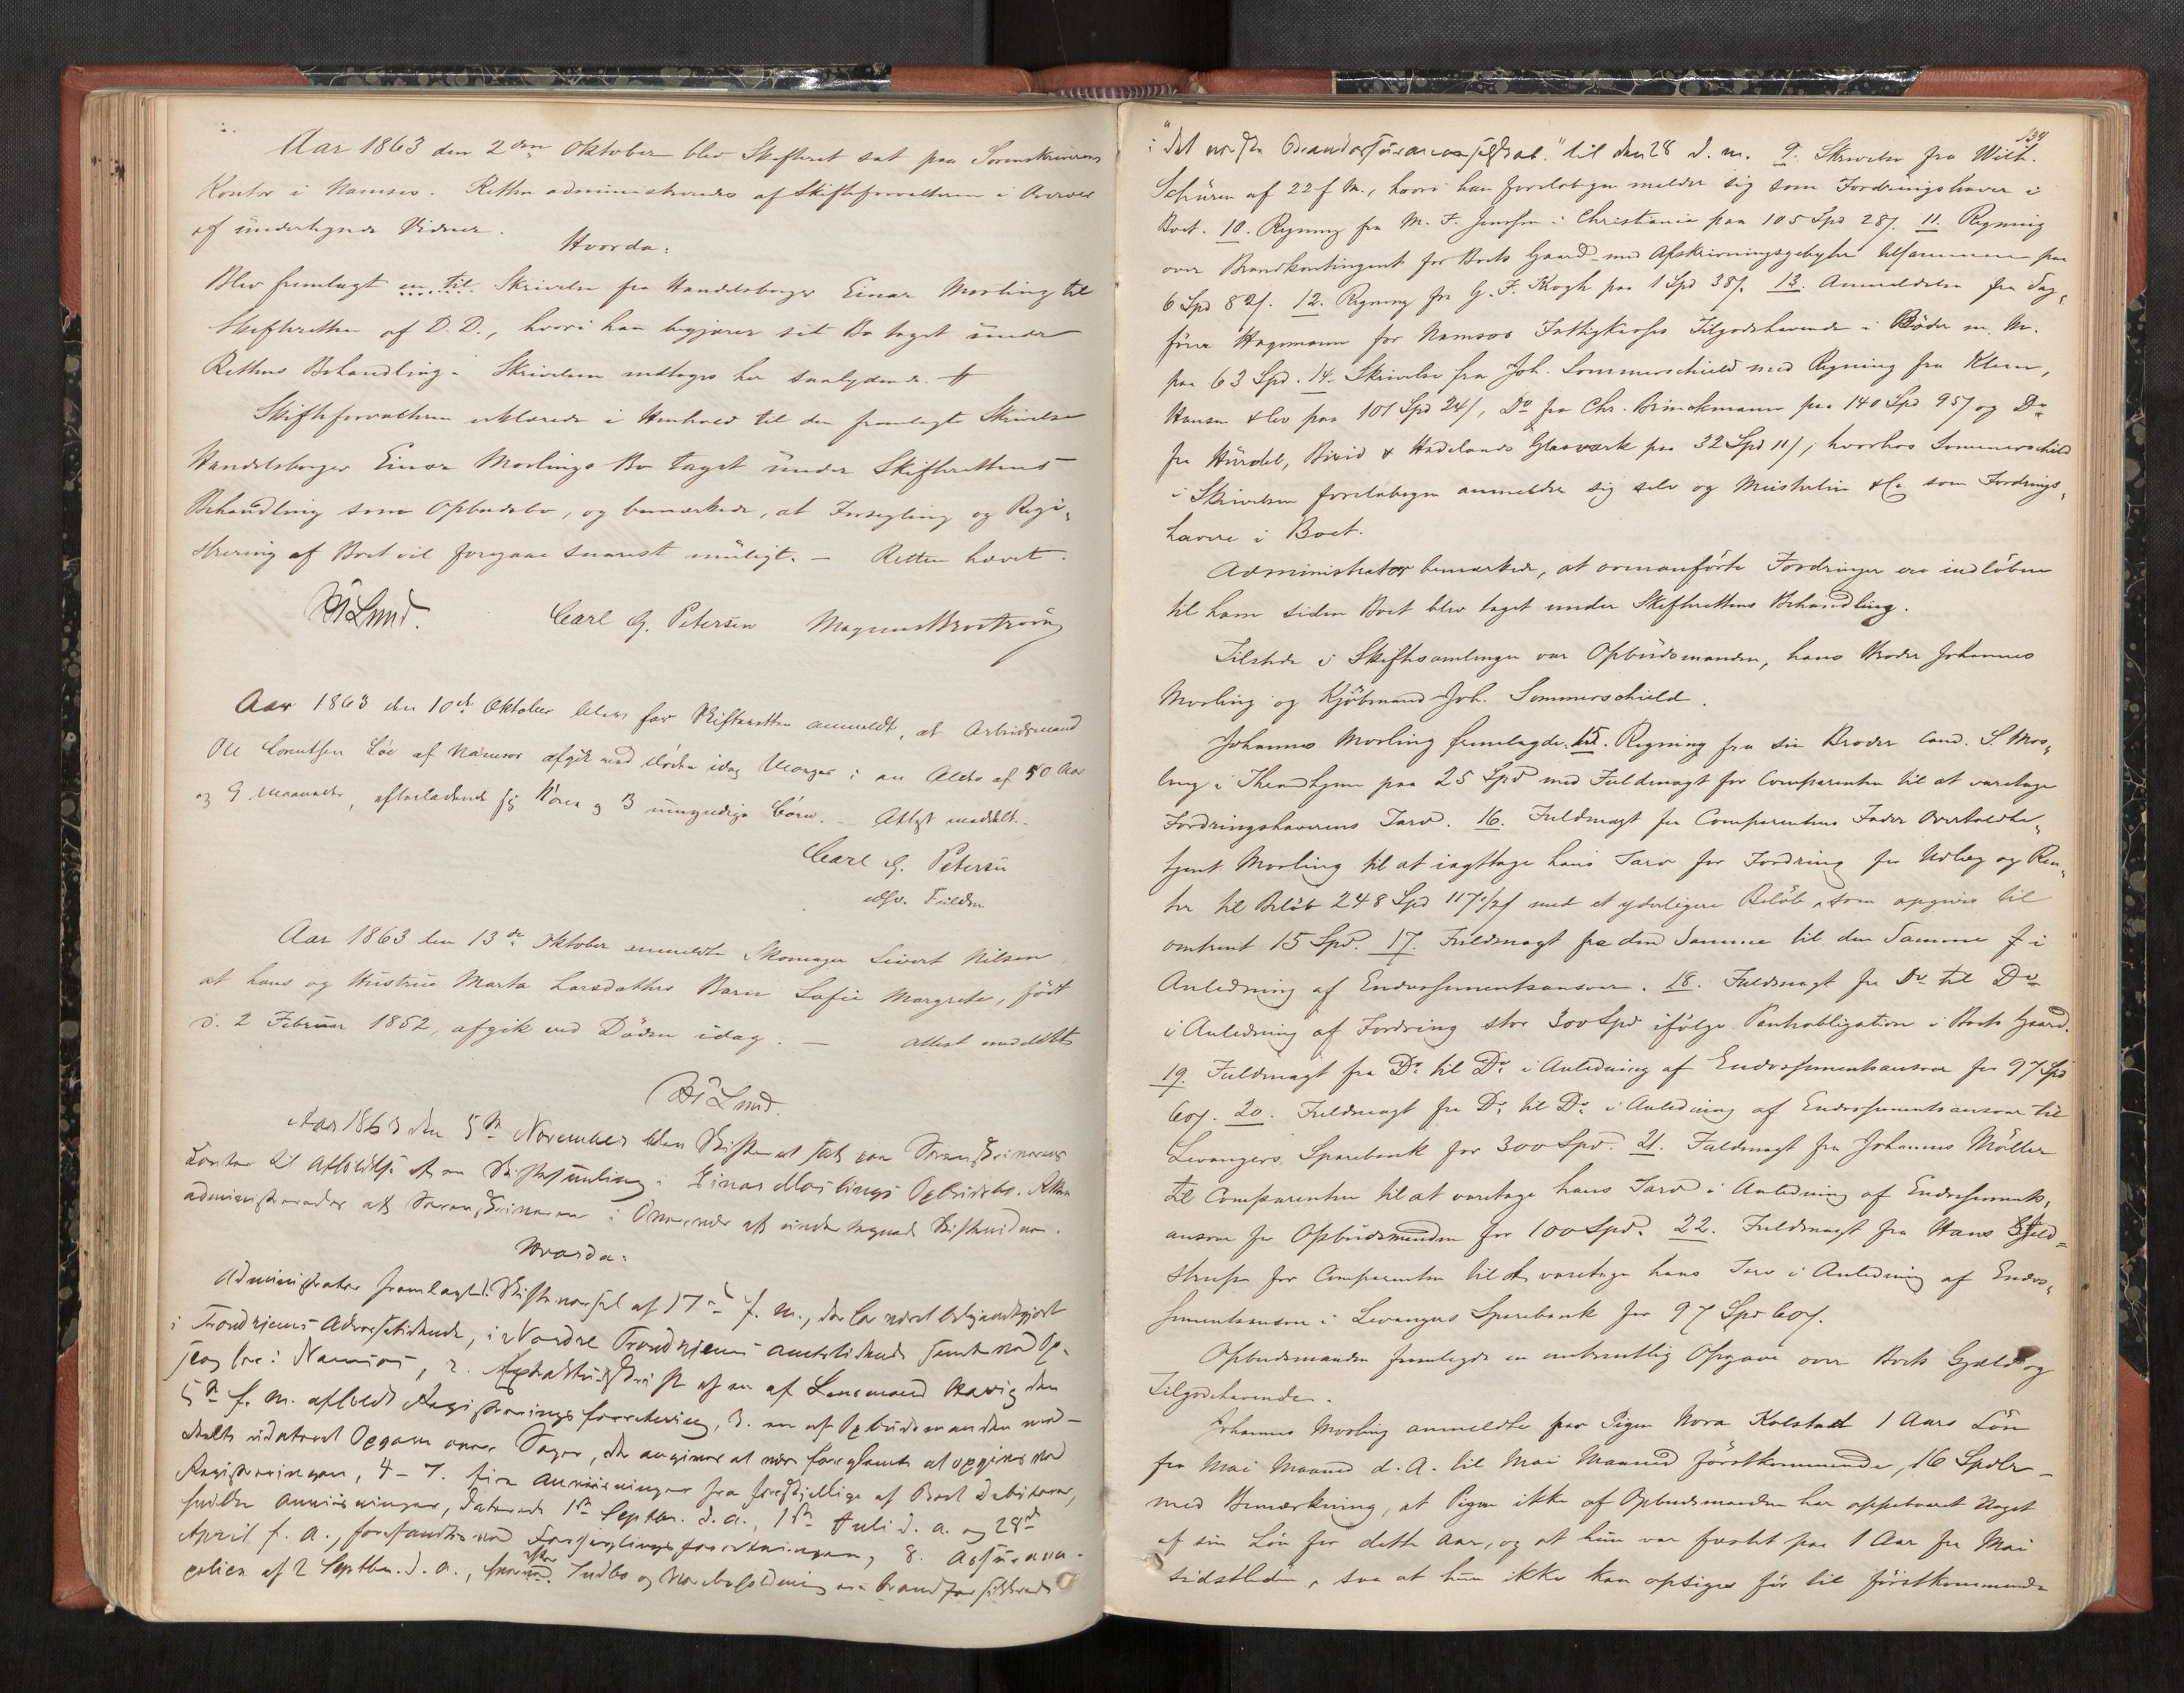 Aar 1863 den 2den Oktober blev Skifteret sat paa Sorenskriverens
Kontor i Namsos. Retten administreredes af Skifteforvalteren i Overvær
af undertegnede Vidner.
Hvorda:
Blev fremlagt en til Skrivelse fra Handelsborger Einar Morling til
Skifteretten af D. D., hvori han begjærer sit Bo taget under
Rettens Behandling. Skrivelsen indtages her saalydende.
Skifteforvalteren erklærede i Henhold til den fremlagte Skrivelse
Handelsborger Einar Morlings Bo taget under Skifterettens
Behandling som Opbudsbo, og bemærkede, at Forsegling og Regi-
strering af Boet vil foregaae snarest muligt. — Retten hævet.
Lund. Carl G. Petersen Magnus
Aar 1863 den 10de Oktober blev for Skifteretten anmeldt, at Arbeidsmand
Ole Lorentsen Løe af Namsos afgik ved Døden idag Morges i en Alder af 50 Aar
og 9 Maaneder, efterladende sig Kone og 3 umyndige Børn. — Attest meddelt.
Carl G. Petersen
Fuldm
Aar 1863 den 13de Oktober anmeldte Skomager Sivert Nilsen
at hans og Hustrue Marta Larsdatters Barn Sofie Margrete, født
d. 2 Februar 1852, afgik ved Døden idag. — Attest meddelt
Lund.
Aar 1863 den 5te November blev Skifteret sat paa Sorenskriverens
Contor til Afholdelse af en Skiftesamling i Einar Morlings Opbudsbo. Retten
administreredes af Sorenskriveren i Overvær af undertegnede Skiftevidner.
Hvorda:
Administrator fremlagde: Skiftevarsel af 17de f. M., der har været bekjendtgjort
i Trondhjems Adressetidende, i Nordre Trondhjems Amtstidende samt ved Op-
slag her i Namsos, 2. Extraktudskrift af en af Lensmand Havig den
5te f. M. afholdt Registreringsforretning, 3. en af Opbudsmanden med-
deelt udateret Opgave over Sager, der angives at være forglemte at opgives ved
Registreringen, 4-7. fire Anviisninger fra forskjellige af Boets Debitorer,
hvilke Anviisninger, daterede 1ste Septbr. d. A., 1ste Juli d. A. og 28de
April f. A., forefandtes ved Forseglingsforretningen, 8. Assurance-
police af 2 Septbr. d. A., hvorefter Indbo og Varebeholdning er brandforsikkrede
134
i "det norske Brandassuranceselskab" til den 28 d. M. 9. Skrivelse fra Wilh.
Schüren af 22 f. M., hvori han foreløbigen melder sig som Fordringshaver i
Boet. 10. Regning fra M. F. Jensen i Christiania paa 105 Spd 28 s. 11. Regning
over Brandkontingent for Boets Gaard med Afskrivningsgebyhr tilsammen paa
6 Spd 82 s. 12. Regning fra G. F. Krogh paa 1 Spd 38 s. 13. Anmeldelse fra Sag-
fører Hagemann for Namsos Fattigkasses Tilgodehavende i Bøder m. M.
paa 63 Spd. 14. Skrivelse fra Joh. Sommerschield med Regning fra Klem,
Hansen & Co paa 101 Spd 24 s, Do fra Chr. Brinckmann paa 140 Spd 95 s og Do
fra Hurdal, Birid & Hadelands Glasværk paa 32 Spd 11 s, hvorhos Sommerschield
i Skrivelsen foreløbigen anmelder sig selv og & Co som Fordrings-
havere i Boet.
Administrator bemærkede, at ovenanførte Fordringer ere indløbne
til ham siden Boet blev taget under Skifterettens Behandling.
Tilstede i Skiftesamlingen var Opbudsmanden, hans Broder Johannes
Morling og Kjøbmand Joh. Sommerschield.
Johannes Morling fremlagde: 15. Regning fra sin Broder Cand. S. Mor-
ling i Throndhjem paa 25 Spd med Fuldmagt for Comparenten til at varetage
Fordringshaverens Tarv. 16. Fuldmagt fra Comparentens Fader Overtoldbe-
tjent Morling til at iagttage hans Tarv for Fordring for Udlæg og Ren-
ter til Beløb 248 Spd 117 1/2 s med et yderligere Beløb, som opgives til
omtrent 15 Spd. 17. Fuldmagt fra den Samme til den Samme i
Anledning af Endossementsansvar. 18. Fuldmagt fra Do til Do
i Anledning af Fordring stor 300 Spd ifølge Panteobligation i Boets Gaard.
19. Fuldmagt fra Do til Do i Anledning af Endossementsansvar for 97 Spd
60 s. 20. Fuldmagt fra Do til Do i Anledning af Endossementsansvar til
Levangers Sparebank for 300 Spd. 21. Fuldmagt fra Johannes Møller
til Comparenten til at varetage hans Tarv i Anledning af Endossements-
ansvar for Opbudsmanden for 100 Spd. 22. Fuldmagt fra Hans
strup for Comparenten til at varetage hans Tarv i Anledning af Endos-
sementsansvar i Levangers Sparebank for 97 Spd 60 s.
Opbudsmanden fremlagde en omtrentlig Opgave over Boets Gjæld og
Tilgodehavende.
Johannes Morling anmeldte for Pigen Nora Kolstad 1 Aars Løn
fra Mai Maaned d. A. til Mai Maaned førstkommende, 16 Spdlr —
med Bemærkning, at Pigen ikke af Opbudsmanden har oppebaaret Noget
af sin Løn for dette Aar, og at hun var fæstet paa 1 Aar fra Mai
sidstleden, saa at hun ikke kan opsiges før til førstkommende